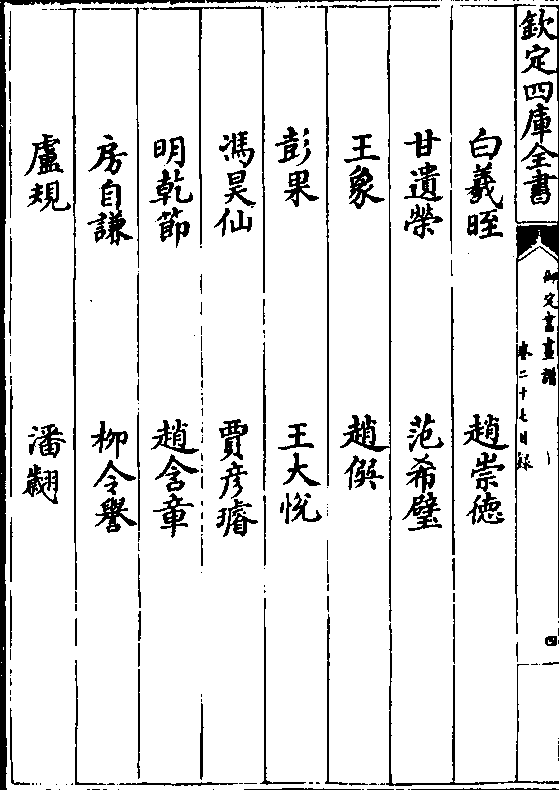 欽定四庫全書
御定書畫譜
卷二十七目録
四
白羲晊 趙崇徳
甘遺榮 范希璧
王象 趙
彭果 王大悅
馮昊仙 賈彦璿
明乾節 趙含章
房自謙 柳令譽
盧規 潘翽